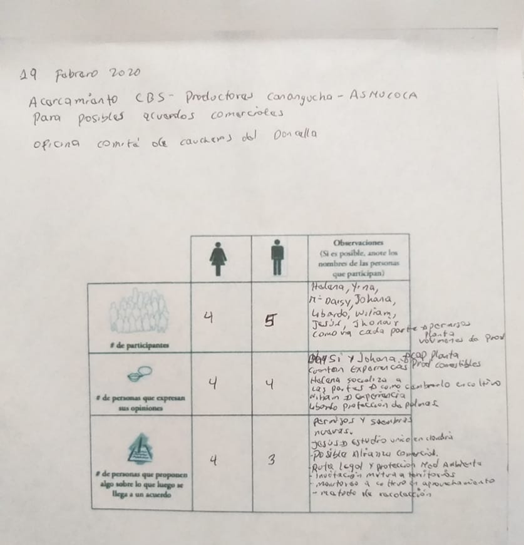 19 Febrero 2020
Acercamiento CBS - Productores Canangucha - ASMUCOCA
Para posibles acuerdos comerciales
oficina comité de caucheros del Doncello
Observaciones
(Si es posible, anote los
nombres de las personas
que participan)
# de participantes
4
5
Helena, Yina,
Mª Daisy, Johana,
Libardo, Wiliam,
Jesús, Jhonar
como va cada parte operarios
Planta
volumenes de Prod
# de personas que expresan
sus opiniones
4
4
Daysi y Johana Planta
cuentan Experiencias Prod comestibles
Helena socializa a
las partes como
Wiliam experiencia
Libardo protección de palmas
# de personas que proponen
algo sobre lo que luego se
llega a un acuerdo
4
3
Permisos y siembras
nuevas.
Jesús estudio
- Posible Alianza comercial.
- Ruta legal y protección Med Ambiente
- Invitación mutua a
- monitoreo a cultivo en aprovechamiento
- metodo de recolección